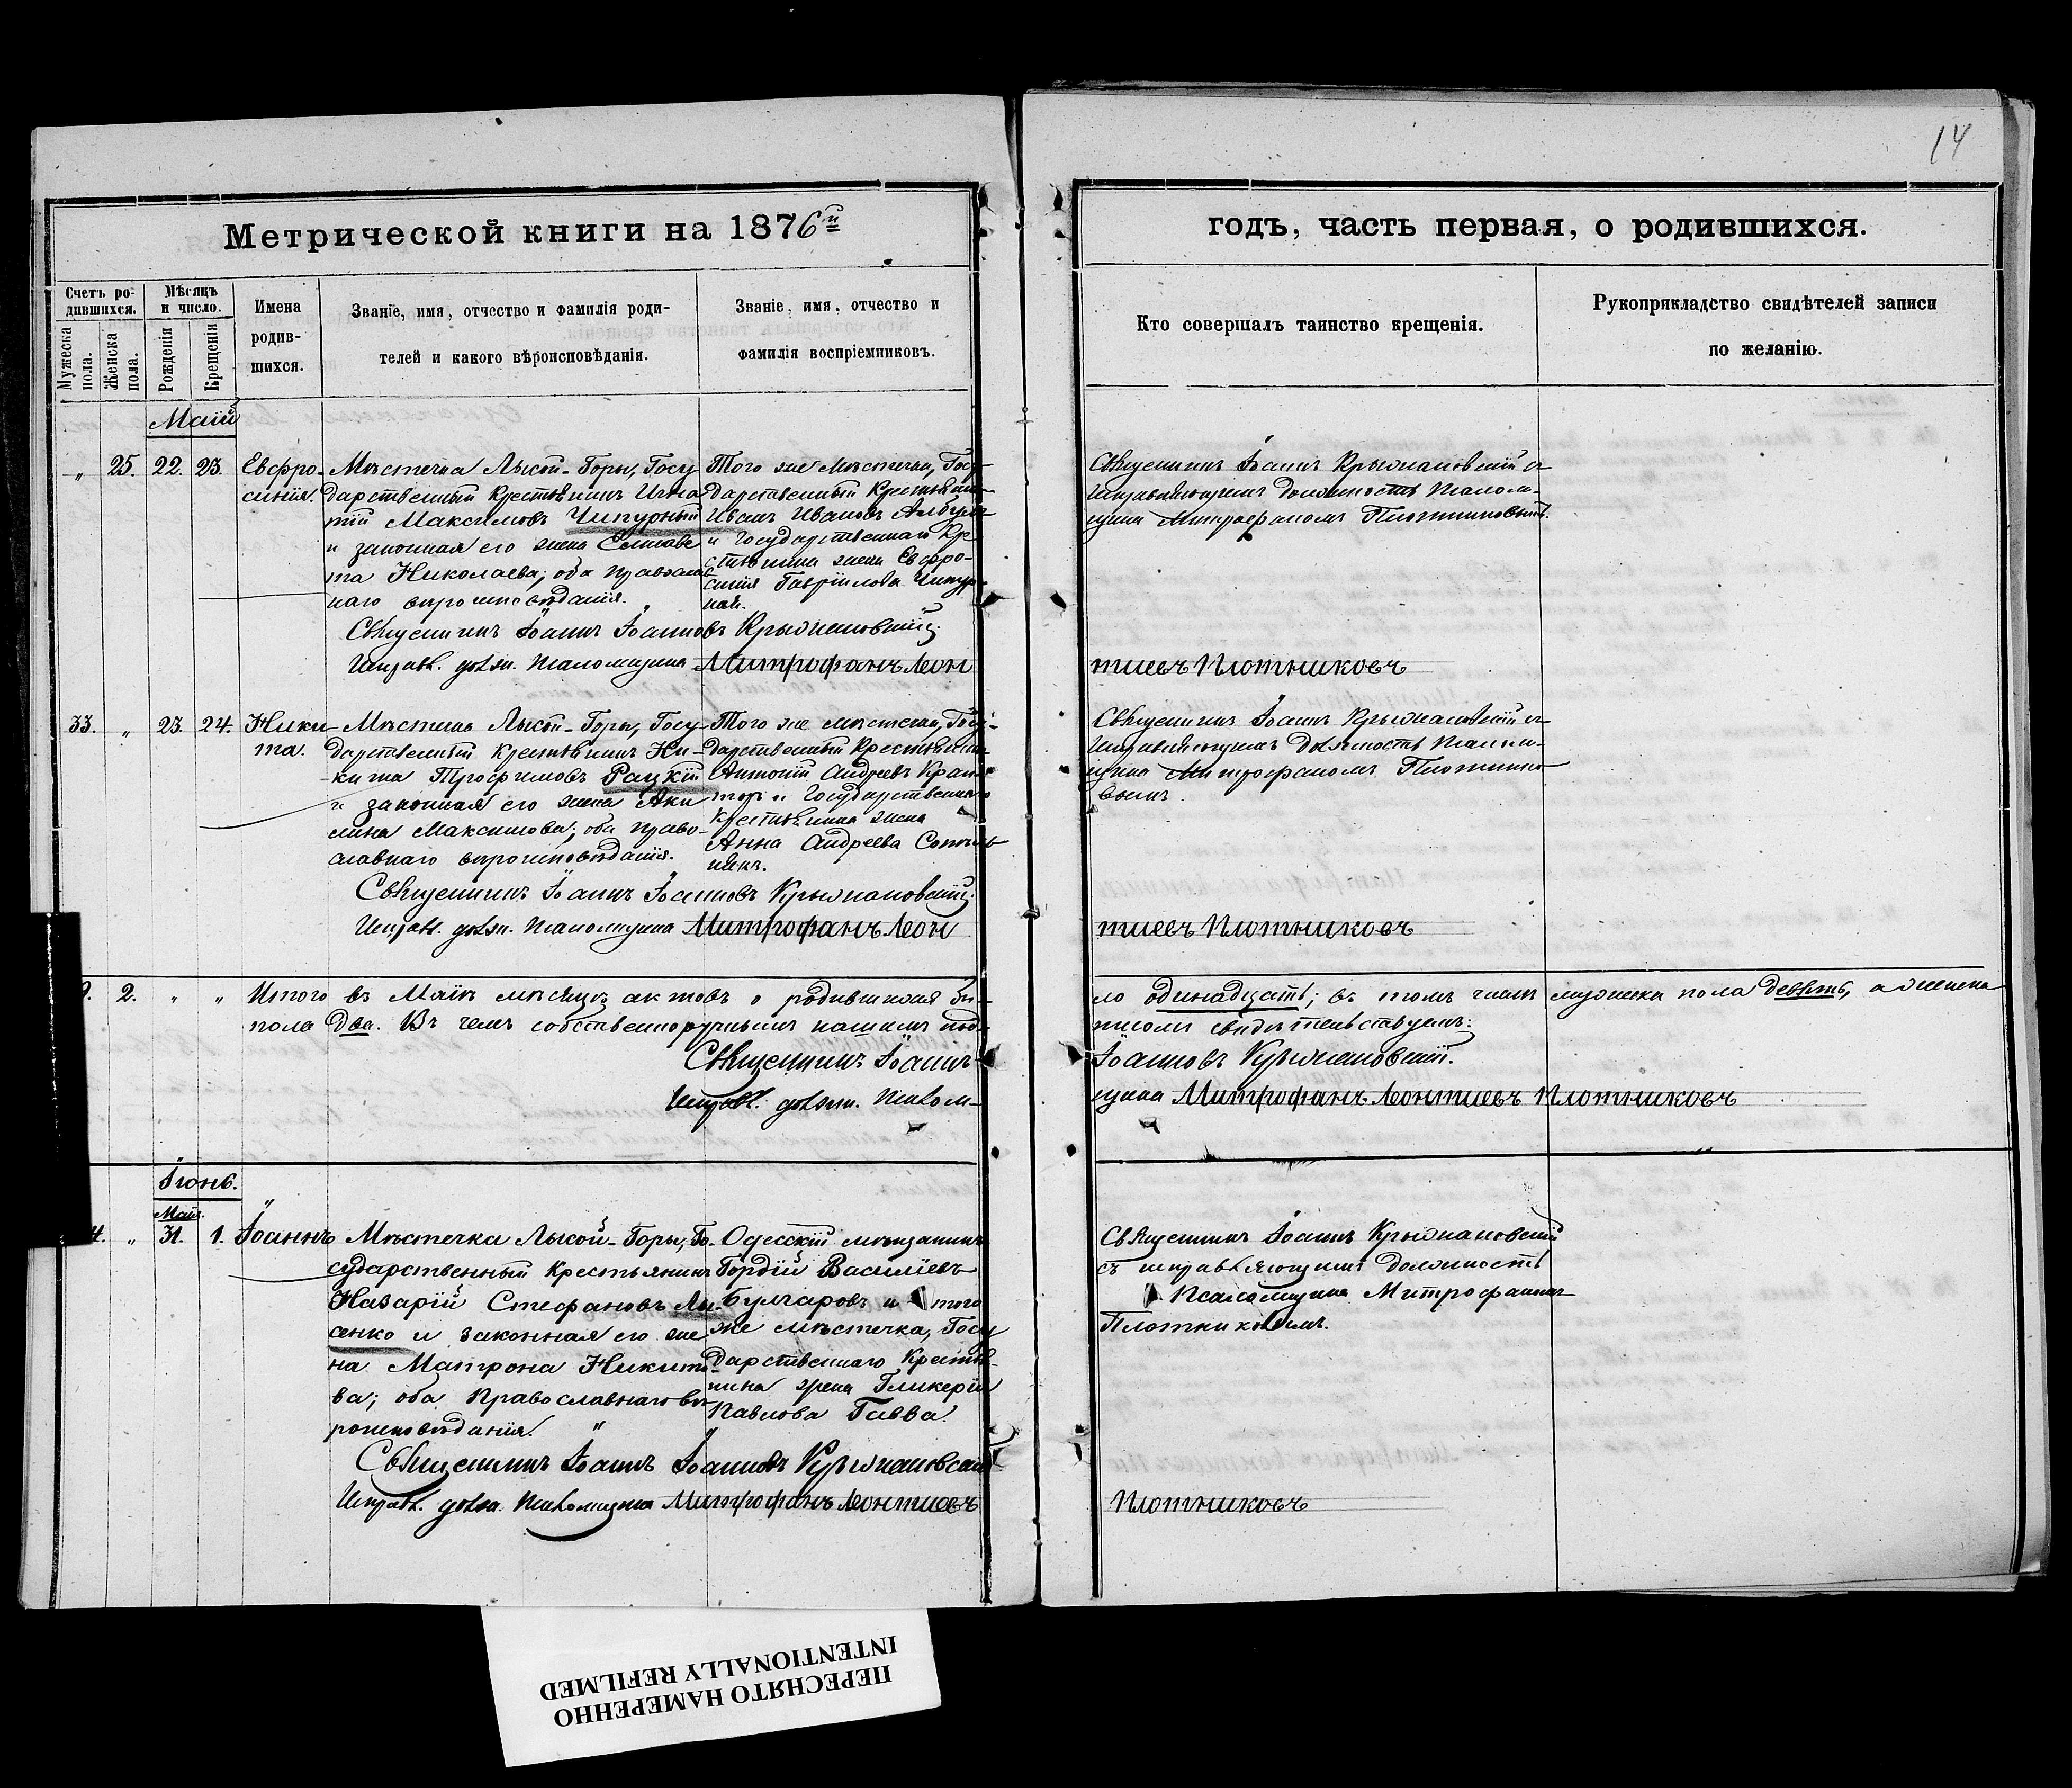 14
Метрической книги на 1876й
годъ, часть первая, о родившихся.
Счетъ ро-
дившихся.
Мужеска пола.
Женска пола.
Мѣсяцъ
и число.
Рожденія
Крещенія
Имена
родив-
шихся.
Званіе, имя, отчество и фамилія роди-
телей и какого вѣроисповѣданія.
Званіе, имя, отчество и
фамилія воспріемниковъ.
Кто совершалъ таинство крещенія.
Рукоприкладство свидѣтелей записи
по желанію.
Маій
„ 25. 22. 23.
Евфро-
синія.
Мѣстечка Лысой-Горы, Госу
дарственный Крестьянинъ Игна-
тій Максимовъ Чипурный
и законная его жена Елисаве
та Николаева; оба православ
наго вѣроисповѣданія.
Того же мѣстечка, Госу-
дарственный Крестьянин
Иванъ Ивановъ
и Государственнаго Кре
стьянина жена Евфро-
синія Гавріилова Чипур-
ная.
Священникъ Іоаннъ Крыжановскій съ
исправляющимъ должность псалом-
щика Митрофаномъ Плотниковымъ.
Священникъ Іоаннъ Іоанновъ Крыжановскій
Исправл. должн. псаломщика Митрофанъ Леон
тиевъ Плотниковъ
33. „ 23. 24.
Ники-
та.
Мѣстечка Лысой-Горы, Госу-
дарственный крестьянинъ Ни-
кита Трофимовъ Рацкій
и законная его жена Аки
лина Максимова; оба право-
славнаго вѣроисповѣданія.
Того же мѣстечка, Госу-
дарственный Крестьянин
Антоній Андреевъ
и Государственнаго
крестьянина жена
Анна Андреева
Священникъ Іоаннъ Крыжановскій съ
исправляющимъ должность псалом-
щика Митрофаномъ Плотнико
вымъ.
Священникъ Іоаннъ Іоанновъ Крыжановскій
Исправл. должн. псаломщика Митрофанъ Леон
тиевъ Плотниковъ
9. 2. „ „
Итого въ Маіѣ мѣсяцѣ актовъ о родившихся бы-
ло одинадцать; въ томъ числѣ мужеска пола девять, а женска
пола два. Въ чемъ собственноручнымъ нашимъ под-
писомъ свидѣтельствуемъ:
Священникъ Іоаннъ
Іоанновъ Крыжановскій.
Исправл. должн. псалом-
щика Митрофанъ Леонтиевъ Плотниковъ
Іюнь.
Маія
4. „ 31. 1.
Іоаннъ
Мѣстечка Лысой-Горы, Го-
сударственный Крестьянинъ
Назарій Стефановъ Лы-
сенко и законная его же
на Матрона Никито-
ва; оба Православнаго вѣ-
роисповѣданія.
Одесскій мѣщанинъ
Гордій Василіевъ
Булгаровъ и того
же мѣстечка, Госу
дарственнаго Крестья-
нина жена Гликерія
Павлова Гавва.
Священникъ Іоаннъ Крыжановскій
съ исправляющимъ должность
Псаломщика Митрофаномъ
Плотниковымъ.
Священникъ Іоаннъ Іоанновъ Крыжановскій
Исправл. должн. псаломщика Митрофанъ Леонтиевъ
Плотниковъ
ПЕРЕСНЯТО НАМЕРЕННО
INTENTIONALLY REFILMED